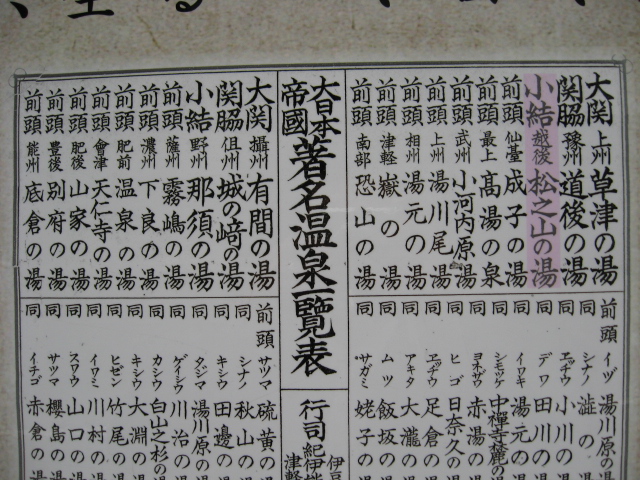 大関 上州 草津の湯
関脇 豫州 道後の湯
小結 越後 松之山の湯
前頭 仙臺 成子の湯
前頭 最上 高湯の泉
前頭 武州 小河内原
前頭 上州 湯川尾
前頭 相州 湯元の湯
前頭 津軽 嶽の湯
前頭 南部 恐山の湯
前頭 イヅ 湯川原の
同 シナノ 澁の湯
同 ヱッチウ 小川の
同 デワ 田川の
同 イワキ 湯元の
同 シモツケ 中禪寺麓の
同 ヨネザワ 赤湯の
同 ヒゴ 日奈久の
同 ヱッチウ 足倉の
同 アキタ 大瀧の
同 ムツ 飯坂の
同 サガミ 姥子の
大日本帝國
著名温泉一覽表
行司
伊豆
紀伊
津軽
大関 攝州 有間の湯
関脇 但州 城の崎の湯
小結 野州 那須の湯
前頭 薩州 霧嶋の湯
前頭 濃州 下良の湯
前頭 肥前 温泉の湯
前頭 會津 天仁寺の湯
前頭 肥後 山家の湯
前頭 豊後 別府の湯
前頭 能州 底倉の湯
前頭 サツマ 硫黄の
同 シナノ 秋山の
同 キシウ 田邊の
同 タジマ 湯川原の
同 ゲイシウ 川治の
同 カシウ 白山之杉の
同 キシウ 大淵の
同 ヒゼン 竹尾の
同 イワミ 川村の
同 スワウ 山口の
同 サツマ 櫻島の
同 イチゴ 赤倉の